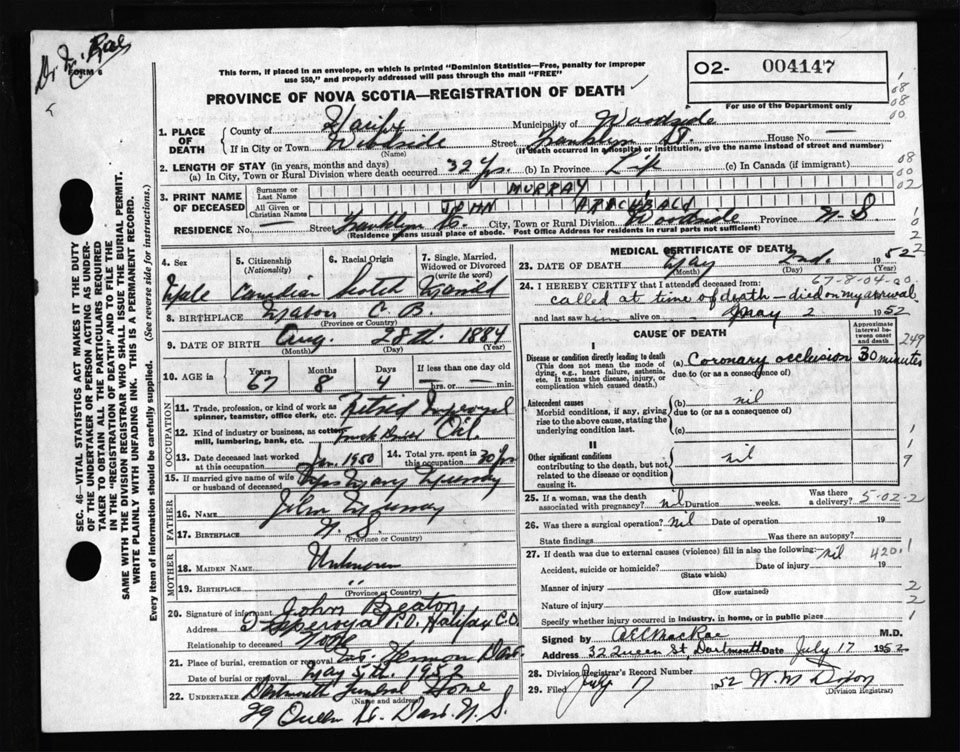 Dr. McRae
FORM 6
This form, if placed in an envelope, on which is printed "Dominion Statistics—Free, penalty for improper
use $50," and properly addressed will pass through the mail "FREE"
PROVINCE OF NOVA SCOTIA—REGISTRATION OF DEATH
O2- 004147
For use of the Department only
SEC. 46—VITAL STATISTICS ACT MAKES IT THE DUTY
OF THE UNDERTAKER OR PERSON ACTING AS UNDER-
TAKER TO OBTAIN ALL THE PARTICULARS REQUIRED
IN THE "REGISTRATION OF DEATH" AND TO FILE THE
SAME WITH THE DIVISION REGISTRAR WHO SHALL ISSUE THE BURIAL PERMIT.
WRITE PLAINLY WITH UNFADING INK. THIS IS A PERMANENT RECORD.
Every item of information should be carefully supplied. (See reverse side for instructions.)
1. PLACE OF DEATH
County of Halifax Municipality of Woodside
If in City or Town Woodside Street Franklyn St. House No. —
(Name) (If death occurred in a hospital or institution, give the name instead of street and number)
2. LENGTH OF STAY (in years, months and days)
(a) In City, Town or Rural Division where death occurred 32 yrs. (b) In Province Life (c) In Canada (if immigrant)
3. PRINT NAME OF DECEASED
Surname or Last Name MURRAY
All Given or Christian Names JOHN ARCHIBALD
RESIDENCE No. — Street Franklyn St. City, Town or Rural Division Woodside Province N. S
(Residence means usual place of abode. Post Office Address for residents in rural parts not sufficient)
4. Sex Male
5. Citizenship (Nationality) Canadian
6. Racial Origin Scotch
7. Single, Married, Widowed or Divorced (write the word) Married
8. BIRTHPLACE Mabou C. B.
(Province or Country)
9. DATE OF BIRTH Aug. 28th. 1884
(Month) (Day) (Year)
10. AGE in Years 67 Months 8 Days 4 If less than one day old — hrs. or — min.
OCCUPATION
11. Trade, profession, or kind of work as spinner, teamster, office clerk, etc. Retired
12. Kind of industry or business, as cotton mill, lumbering, bank, etc. Oil
13. Date deceased last worked at this occupation Jan. 1950 14. Total yrs. spent in this occupation 30 yrs
15. If married give name of wife or husband of deceased Mrs Mary Murray
FATHER
16. Name John Murray
17. Birthplace N. S.
(Province or Country)
MOTHER
18. MAIDEN NAME Unknown
19. BIRTHPLACE "
(Province or Country)
20. Signature of informant John Beaton
Address 3 Imperoyal P.O. Halifax C.O
Relationship to deceased None
21. Place of burial, cremation or removal Mt. Hermon Dart.
Date of burial or removal May 5th. 1952
22. UNDERTAKER Dartmouth Funeral Home
(Name and address)
29 Queen St. Dart. N. S.
MEDICAL CERTIFICATE OF DEATH
23. DATE OF DEATH May 2nd. 1952
(Month) (Day) (Year)
24. I HEREBY CERTIFY that I attended deceased from: 67-8-04-00
called at time of death — died on my arrival
and last saw him alive on May 2 1952
CAUSE OF DEATH
Approximate interval between onset and death
249
I
Disease or condition directly leading to death
(This does not mean the mode of dying, e.g., heart failure, asthenia, etc. It means the disease, injury, or complication which caused death.)
(a) Coronary occlusion 30 minutes
due to (or as a consequence of)
Antecedent causes
Morbid conditions, if any, giving rise to the above cause, stating the underlying condition last.
(b) nil
due to (or as a consequence of)
(c)
II
Other significant conditions
contributing to the death, but not related to the disease or condition causing it.
nil
25. If a woman, was the death associated with pregnancy? nil Duration weeks. Was there a delivery? 5-02-2
26. Was there a surgical operation? nil Date of operation 19
State findings Was there an autopsy?
27. If death was due to external causes (violence) fill in also the following: nil 420.1
Accident, suicide or homicide? Date of injury 19
(State which)
Manner of injury 2
(How sustained)
Nature of injury 2
Specify whether injury occurred in industry, in home, or in public place 1
Signed by M.D.
Address 32 Queen St, Dartmouth Date July 17 1952
28. Division Registrar's Record Number
29. Filed July 17 1952 W. M Dixon
(Division Registrar)